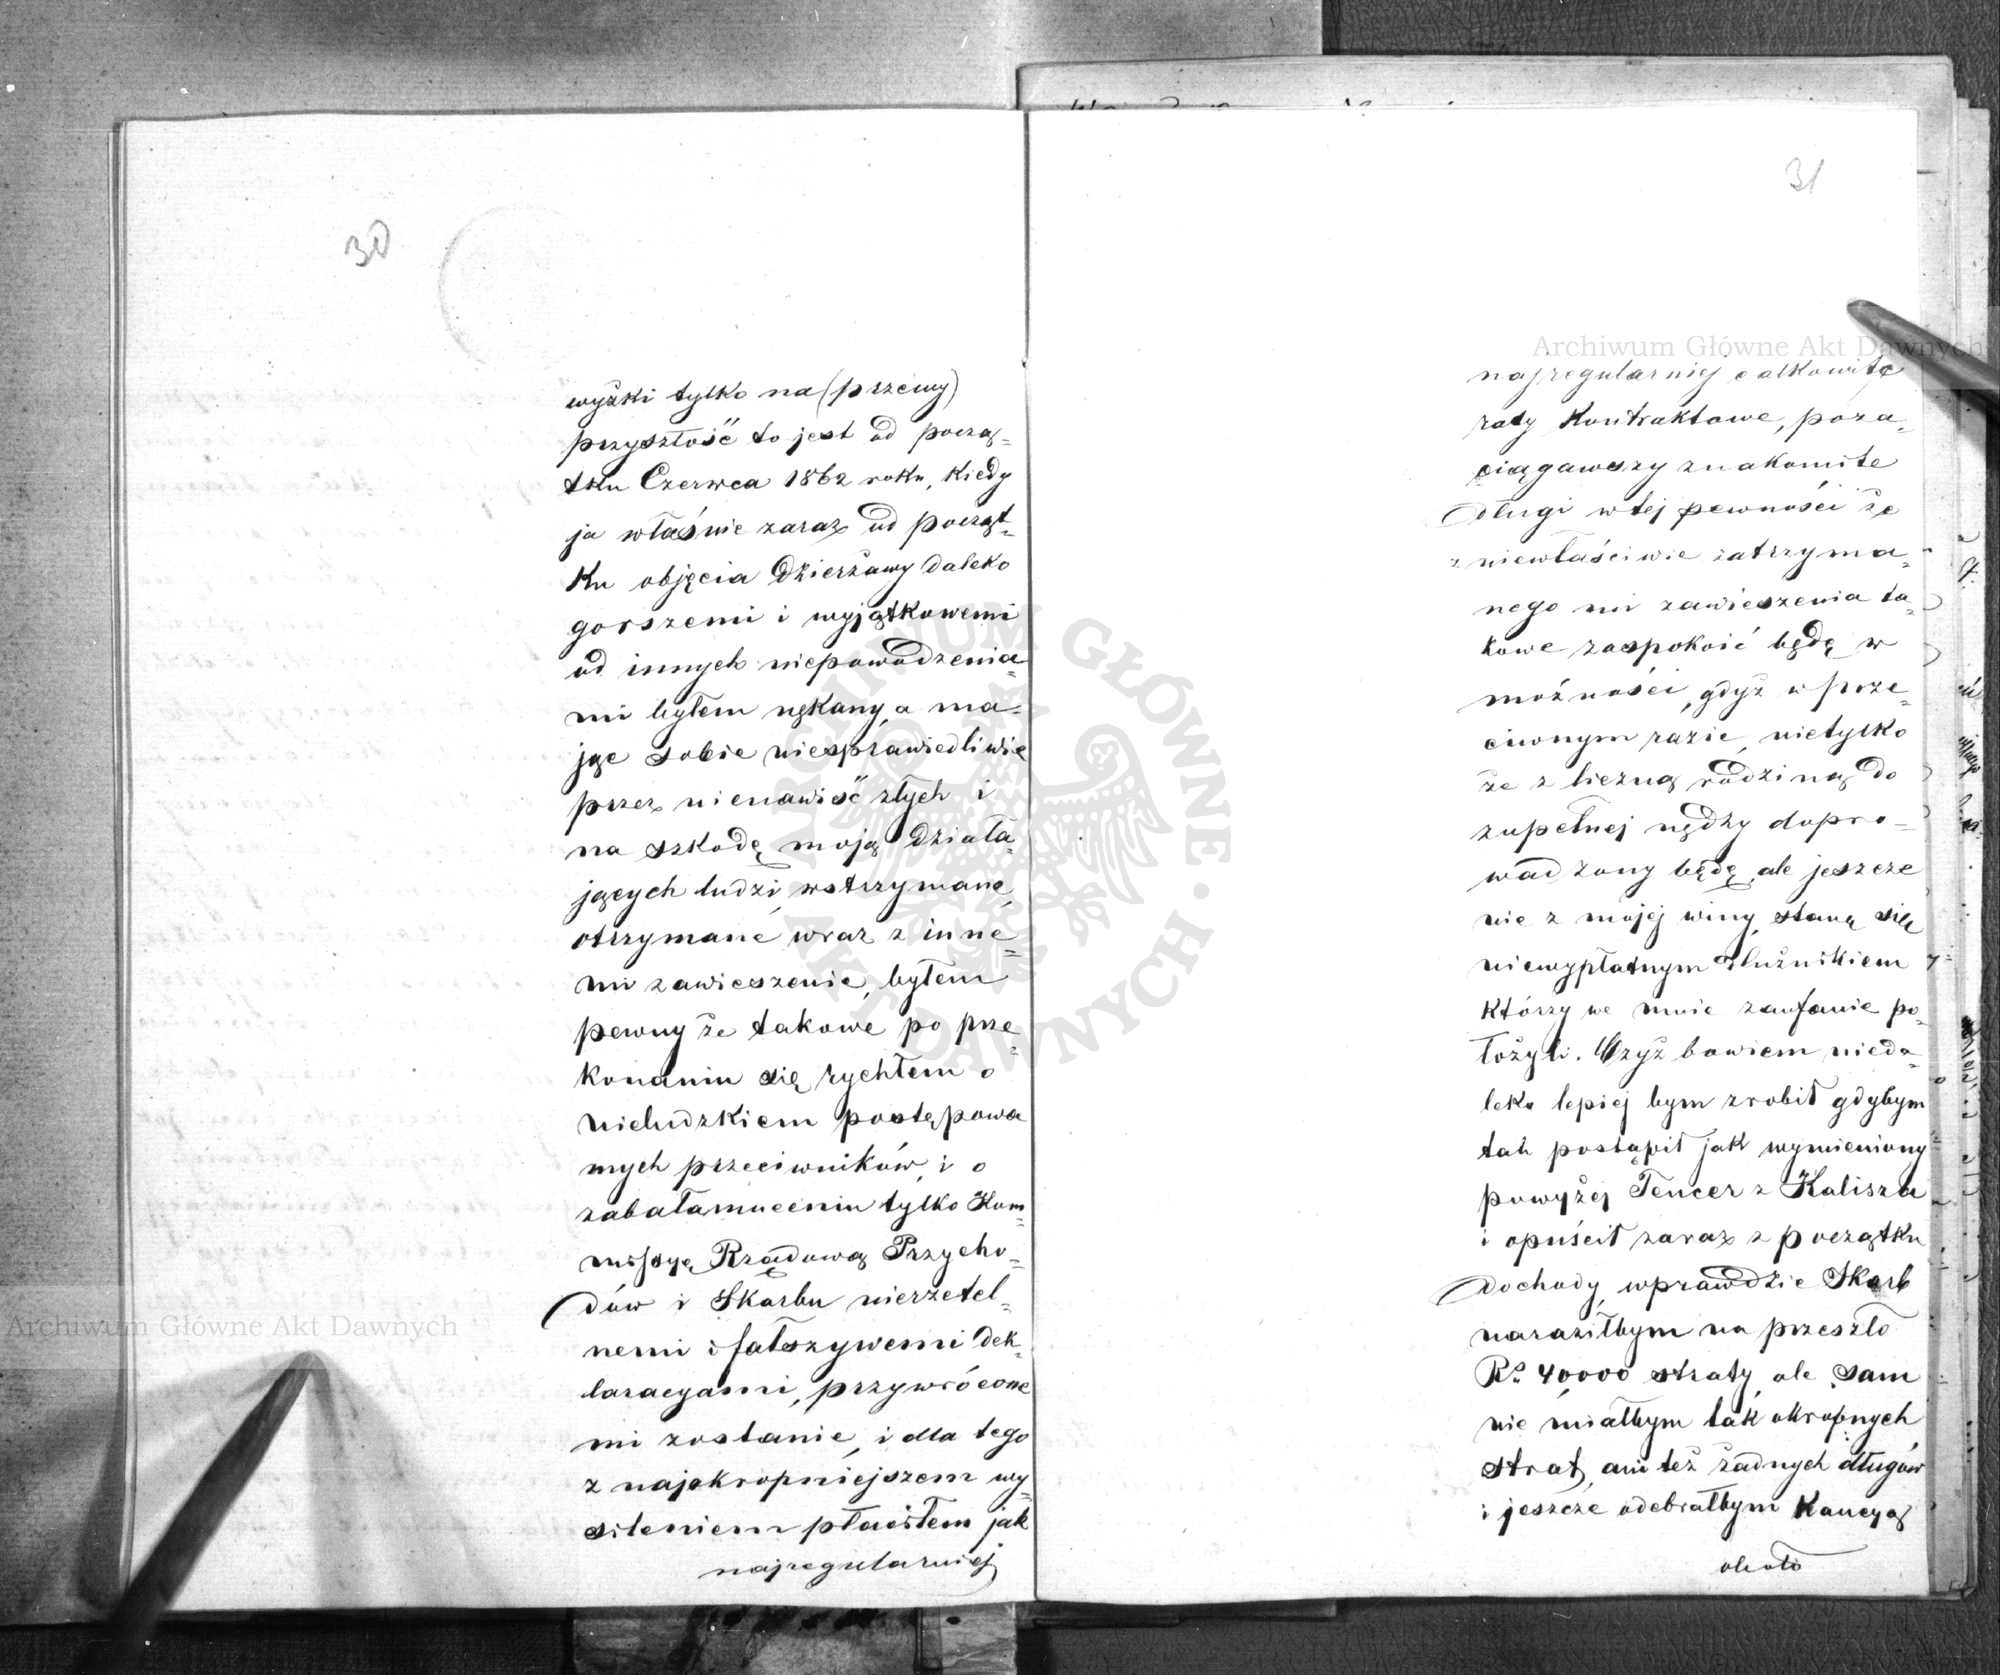 30
wyżki tylko na (przemy)
przyszłość to jest od począ=
tku Czerwca 1862 roku, kiedy
ja właśnie zaraz od począt=
ku objęcia Dzierżawy daleko
gorszemi i wyjątkowemi
od innych niepowodzenia=
mi byłem nękany, a ma=
jąc sobie niesprawiedliwie
przez nienawiść złych i
na szkodę moją działa=
jących ludzi, wstrzymane,
otrzymane wraz z inne=
mi zawieszenie, byłem
pewny że takowe po prze=
konaniu się rychłem o
nieludzkiem postępowa
mych przeciwników, i o
zabałamuceniu tylko Kom=
missyę Rządową Przycho=
dów i Skarbu nierzetel=
nemi i fałszywemi dek=
laracyami, przywrócone
mi zostanie, i dla tego
z najokropniejszem wy=
sileniem płaciłem jak
najregularniej
31
najregularniej całkowite
raty Kontraktowe, poza=
ciągawszy znakomite
długi w tej pewności że
z niewłaściwie zatrzyma=
nego mi zawieszenia ta=
kowe zaspokoić będę w
możności, gdyż w prze=
ciwnym razie, nietylko
że z liczną rodziną do
zupełnej nędzy dopro=
wadzony będę, ale jeszcze
nie z mojej winy, stanę się
niewypłatnym dłużnikiem
którzy we mnie zaufanie po=
łożyli. Czyż bowiem nieda=
leko lepiej bym zrobił gdybym
tak postąpił jak wymieniony
powyżej Tencer z Kalisza
i opuścił zaraz z początku
dochody, wprawdzie Skarb
naraziłbym na przeszło
Rs. 40,000 straty, ale sam
nie miałbym tak okropnych
strat, ani też żadnych długów
i jeszcze odebrałbym Kaucyą
około
Archiwum Główne Akt Dawnych
Archiwum Główne Akt Dawnych
ARCHIWUM GŁÓWNE · AKT DAWNYCH ·